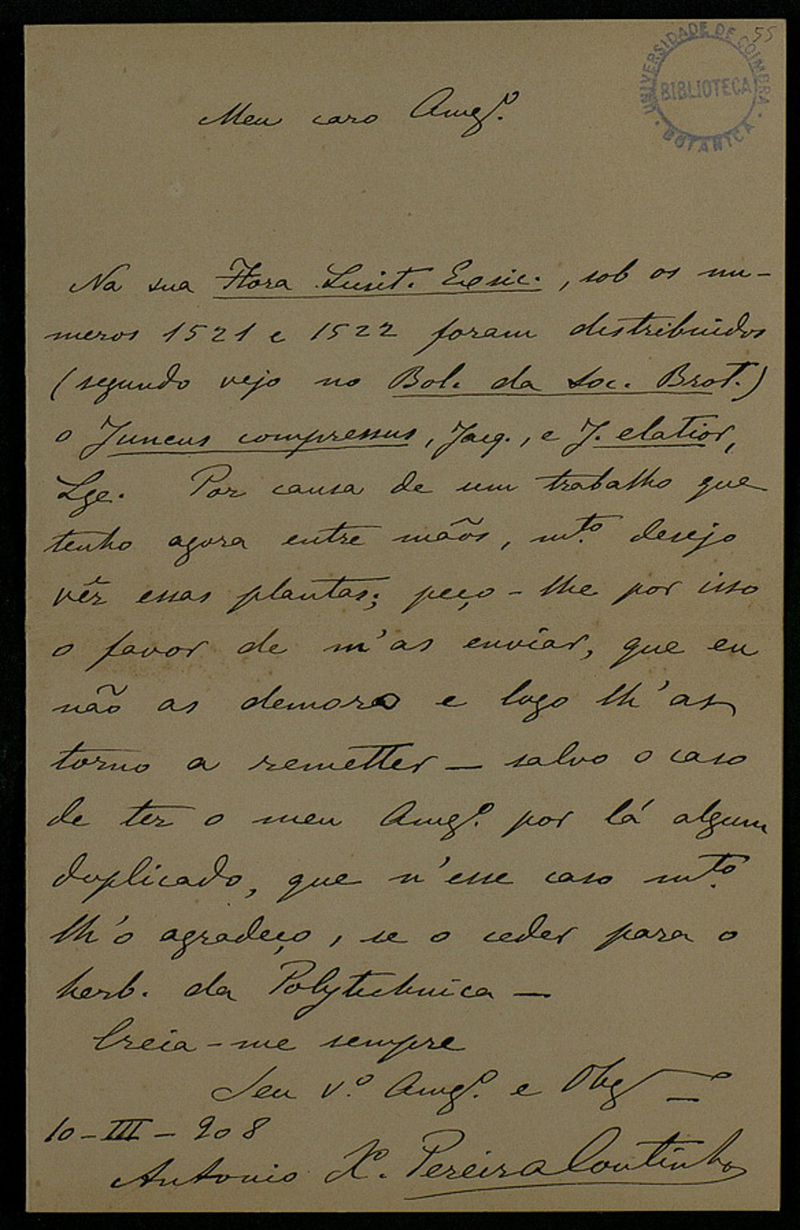 55
UNIVERSIDADE DE COIMBRA
BIBLIOTECA
BOTANICA
Meu caro Amgº.
Na sua Flora Lusit. Exsic., sob os nu-
meros 1521 e 1522 foram distribuidos
(segundo vejo no Bol. da Soc. Brot.)
o Juncus compressus, Jacq., e J. elatior,
Lge. Por causa de um trabalho que
tenho agora entre mãos, mtº. desejo
vêr essas plantas; peço-lhe por isso
o favor de m'as enviar, que eu
não as demoro e logo lh'as
torno a remetter — salvo o caso
de ter o meu Amgº. por lá algum
duplicado, que n'esse caso mtº.
lh'o agradeço, se o ceder para o
herb. da Polytechnica —
Creia-me sempre
Seu vº. Amgº. e Obg
10-III-908
Antonio Xº. Pereira Coutinho